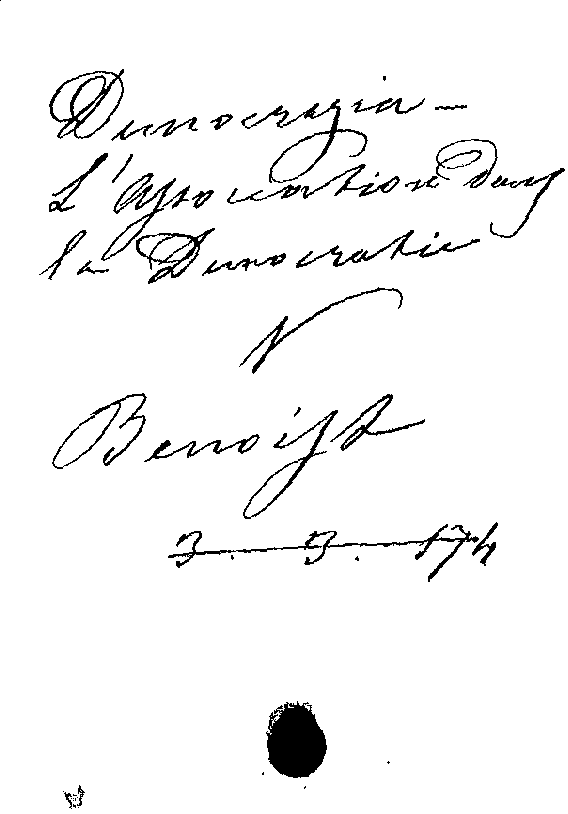 Democrazia -
L'Association dans
la Democratie
V
Benoist
3. 3. 174